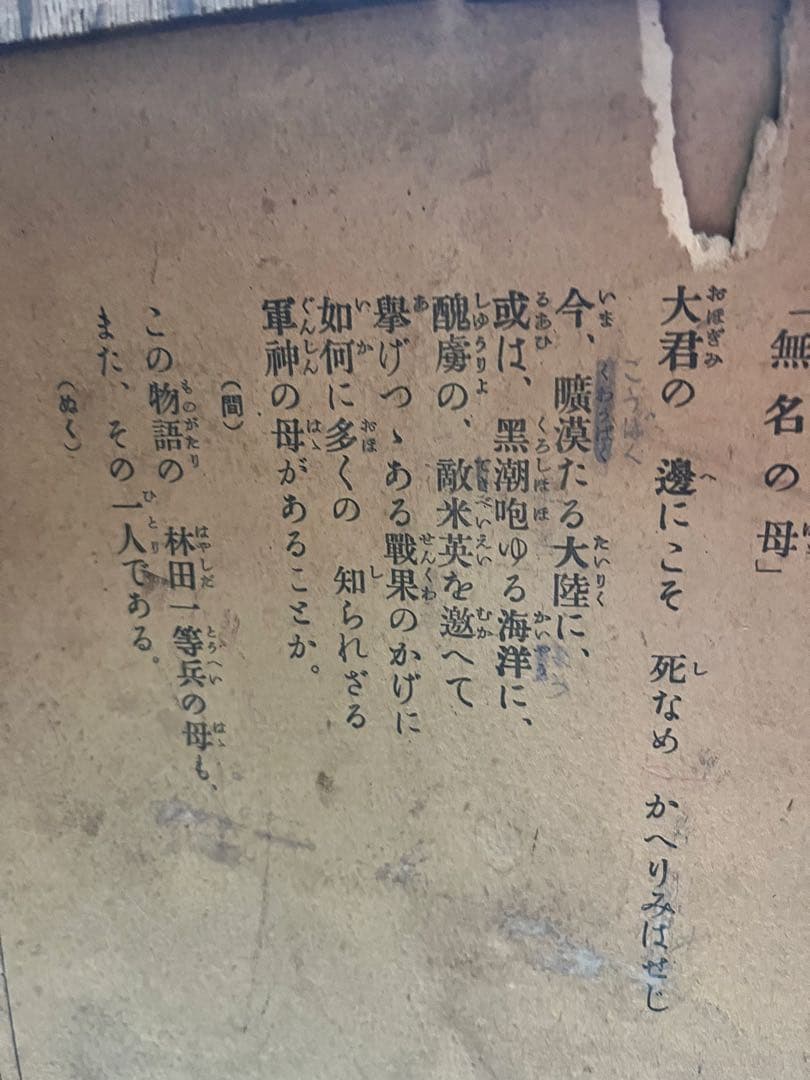 「無名の母」
大君の　邊にこそ　死なめ　かへりみはせじ
今、曠漠たる大陸に、
或は、黑潮咆ゆる海洋に、
醜虜の、敵米英を邀へて
擧げつゝある戰果のかげに
如何に多くの　知られざる
軍神の母があることか。
(間)
この物語の　林田一等兵の母も、
また、その一人である。
(ぬく)